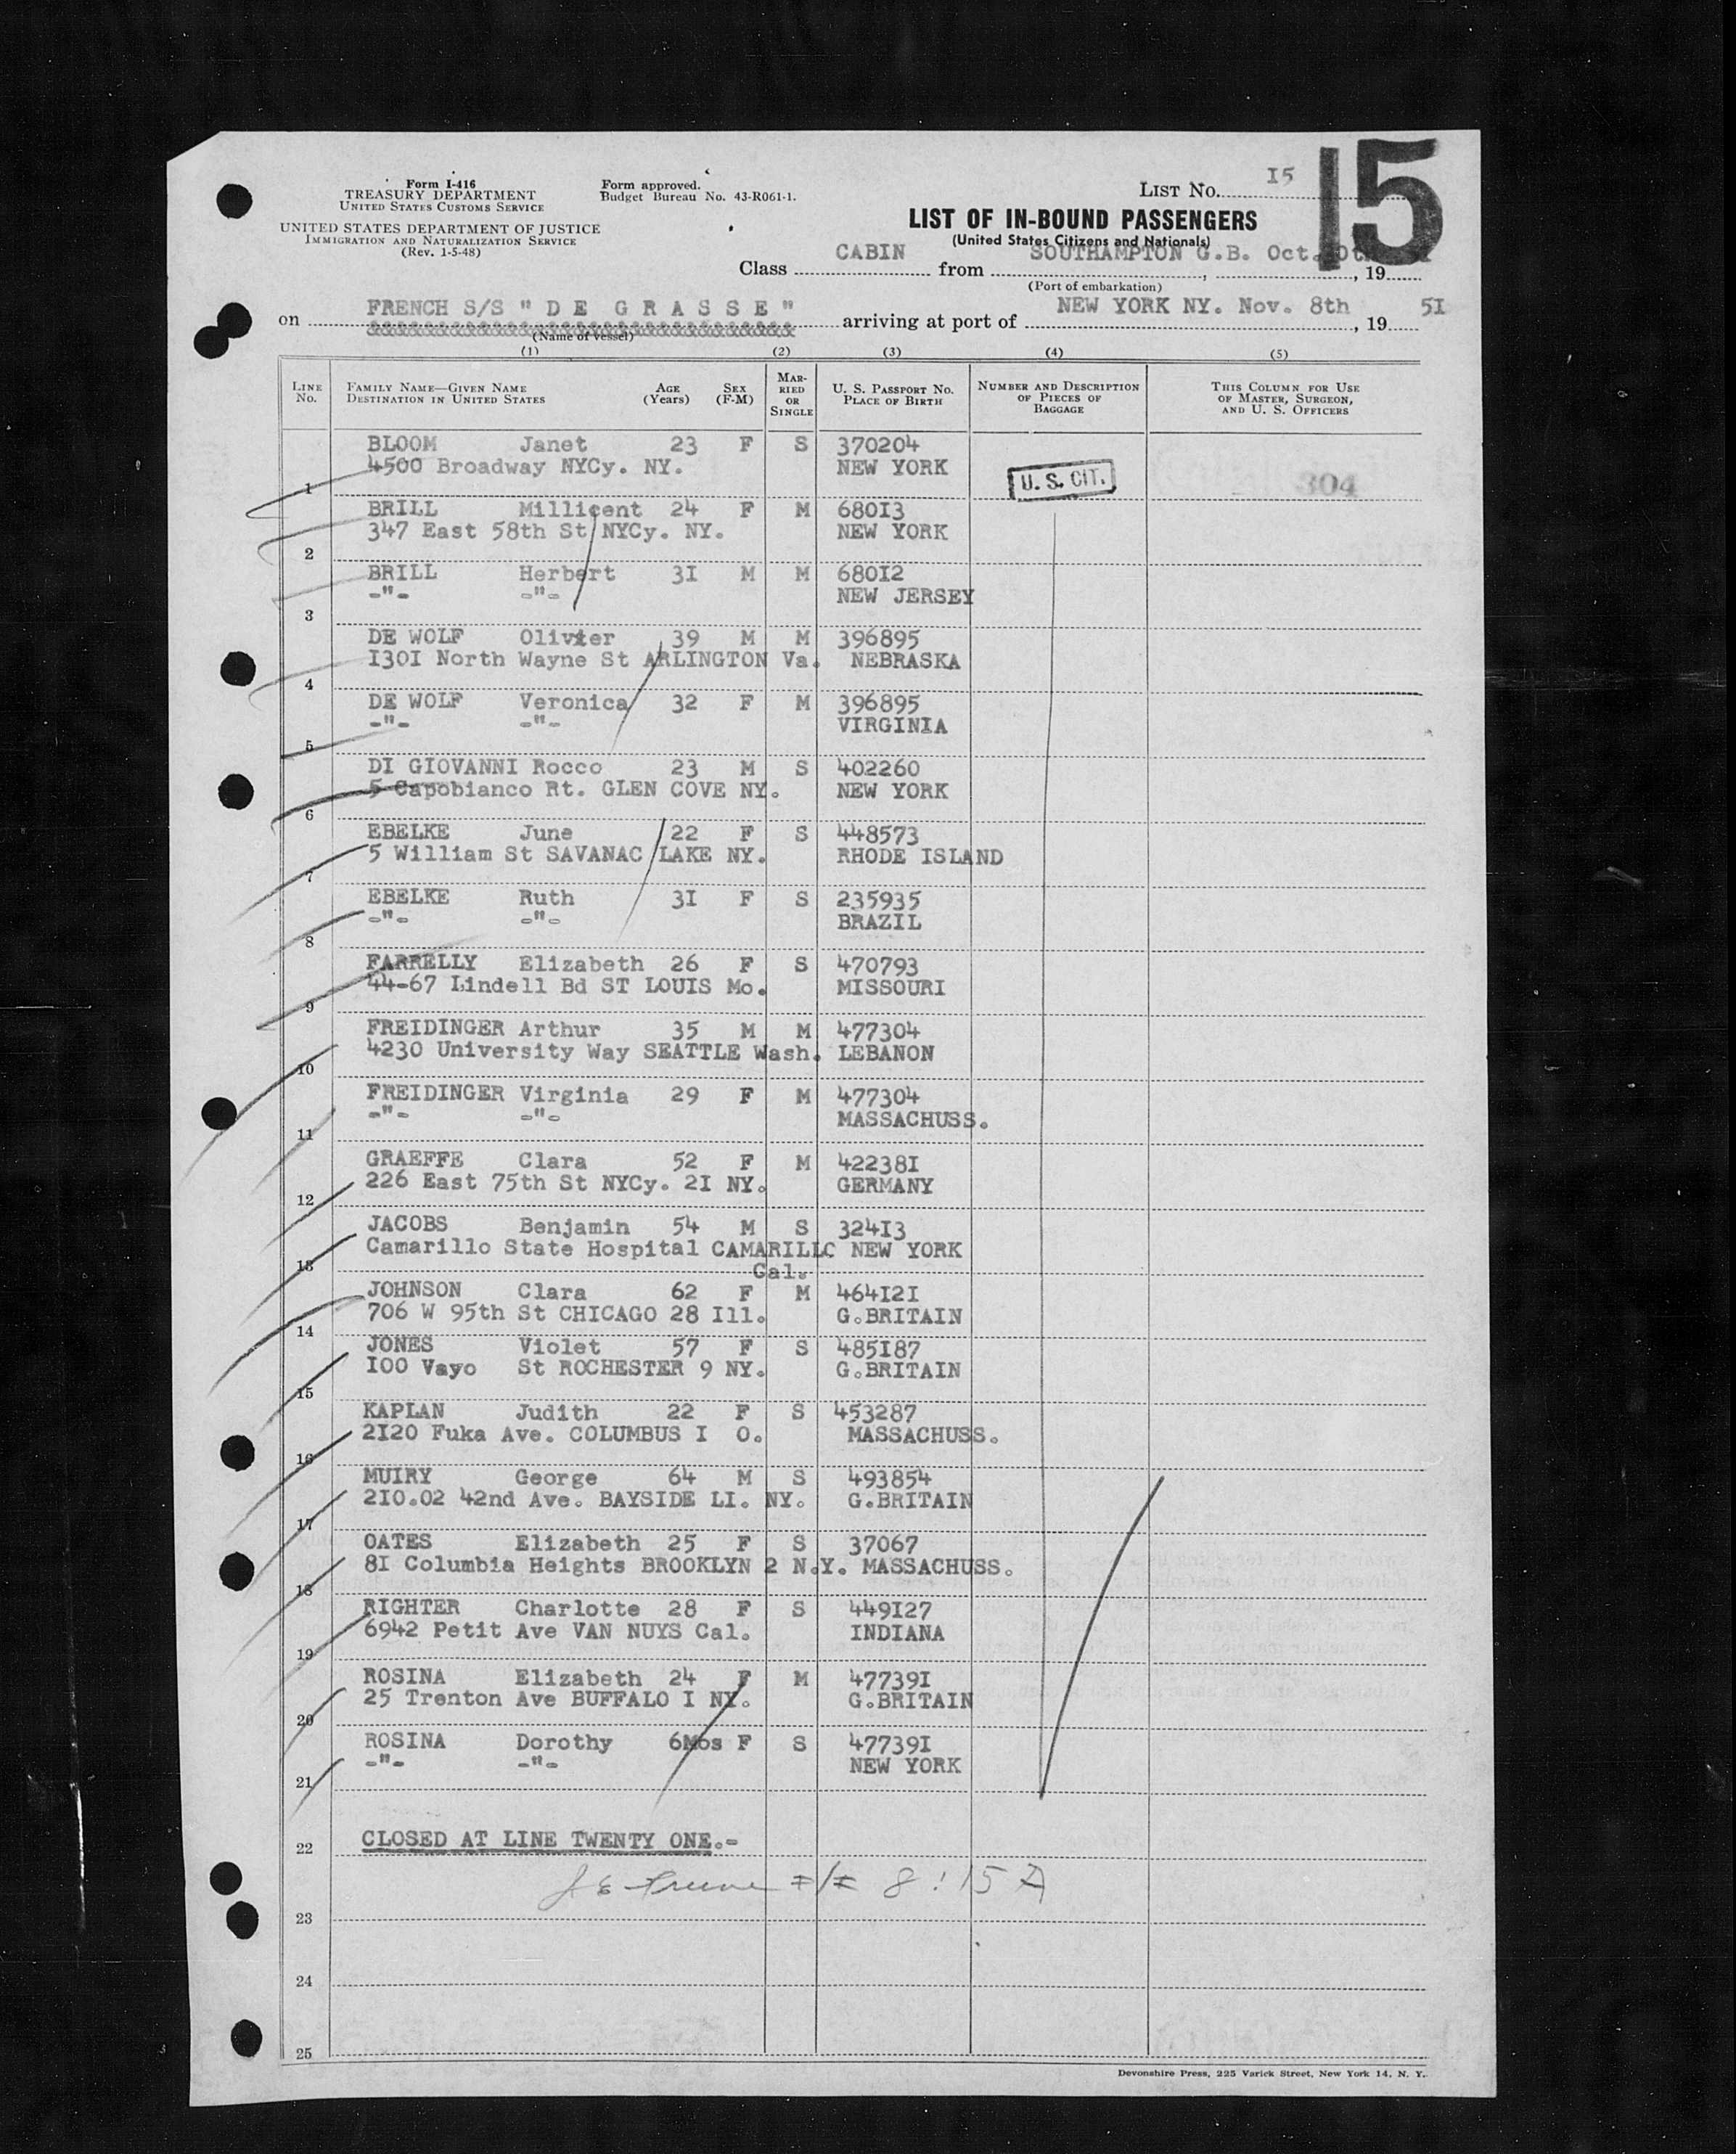 Form I-416
TREASURY DEPARTMENT
UNITED STATES CUSTOMS SERVICE
UNITED STATES DEPARTMENT OF JUSTICE
IMMIGRATION AND NATURALIZATION SERVICE
(Rev. 1-5-48)
Form approved.
Budget Bureau No. 43-R061-1.
LIST No. I5
15
LIST OF IN-BOUND PASSENGERS
(United States Citizens and Nationals)
Class CABIN from SOUTHAMPTON G.B. Oct. , 19
(Port of embarkation)
on FRENCH S/S " D E G R A S S E " arriving at port of NEW YORK NY. Nov. 8th , 19 5I
(Name of vessel)
(1) (2) (3) (4) (5)
LINE No. FAMILY NAME—GIVEN NAME DESTINATION IN UNITED STATES AGE (Years) SEX (F-M) MARRIED OR SINGLE U. S. PASSPORT No. PLACE OF BIRTH NUMBER AND DESCRIPTION OF PIECES OF BAGGAGE THIS COLUMN FOR USE OF MASTER, SURGEON, AND U. S. OFFICERS
BLOOM Janet 23 F S 370204
4500 Broadway NYCy. NY. NEW YORK
U. S. CIT. 304
1
BRILL Millicent 24 F M 680I3
347 East 58th St NYCy. NY. NEW YORK
2
BRILL Herbert 3I M M 680I2
-"- -"- NEW JERSEY
3
DE WOLF Olivier 39 M M 396895
I30I North Wayne St ARLINGTON Va. NEBRASKA
4
DE WOLF Veronica 32 F M 396895
-"- -"- VIRGINIA
5
DI GIOVANNI Rocco 23 M S 402260
5 Capobianco Rt. GLEN COVE NY. NEW YORK
6
EBELKE June 22 F S 448573
5 William St SAVANAC LAKE NY. RHODE ISLAND
7
EBELKE Ruth 3I F S 235935
-"- -"- BRAZIL
8
FARRELLY Elizabeth 26 F S 470793
44-67 Lindell Bd ST LOUIS Mo. MISSOURI
9
FREIDINGER Arthur 35 M M 477304
4230 University Way SEATTLE Wash. LEBANON
10
FREIDINGER Virginia 29 F M 477304
-"- -"- MASSACHUSS.
11
GRAEFFE Clara 52 F M 42238I
226 East 75th St NYCy. 2I NY. GERMANY
12
JACOBS Benjamin 54 M S 324I3
Camarillo State Hospital CAMARILLO NEW YORK
Cal.
13
JOHNSON Clara 62 F M 464I2I
706 W 95th St CHICAGO 28 Ill. G.BRITAIN
14
JONES Violet 57 F S 485I87
I00 Vayo St ROCHESTER 9 NY. G.BRITAIN
15
KAPLAN Judith 22 F S 453287
2I20 Fuka Ave. COLUMBUS I O. MASSACHUSS.
16
MUIRY George 64 M S 493854
2I0.02 42nd Ave. BAYSIDE LI. NY. G.BRITAIN
17
OATES Elizabeth 25 F S 37067
8I Columbia Heights BROOKLYN 2 N.Y. MASSACHUSS.
18
RIGHTER Charlotte 28 F S 449I27
6942 Petit Ave VAN NUYS Cal. INDIANA
19
ROSINA Elizabeth 24 F M 47739I
25 Trenton Ave BUFFALO I NY. G.BRITAIN
20
ROSINA Dorothy 6Mos F S 47739I
-"- -"- NEW YORK
21
CLOSED AT LINE TWENTY ONE.-
22
8:15 A
23
24
25
Devonshire Press, 225 Varick Street, New York 14, N. Y.